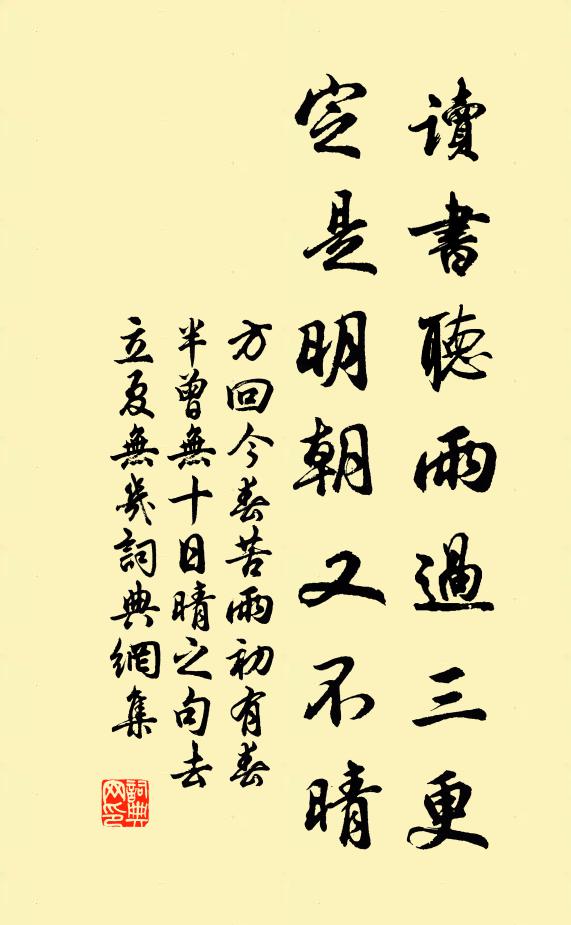 讀書聽雨過三更
定是明朝又不晴
方回今春苦雨初有春
半曾無十日晴之句去
立夏無幾詞典網集
詞典網印